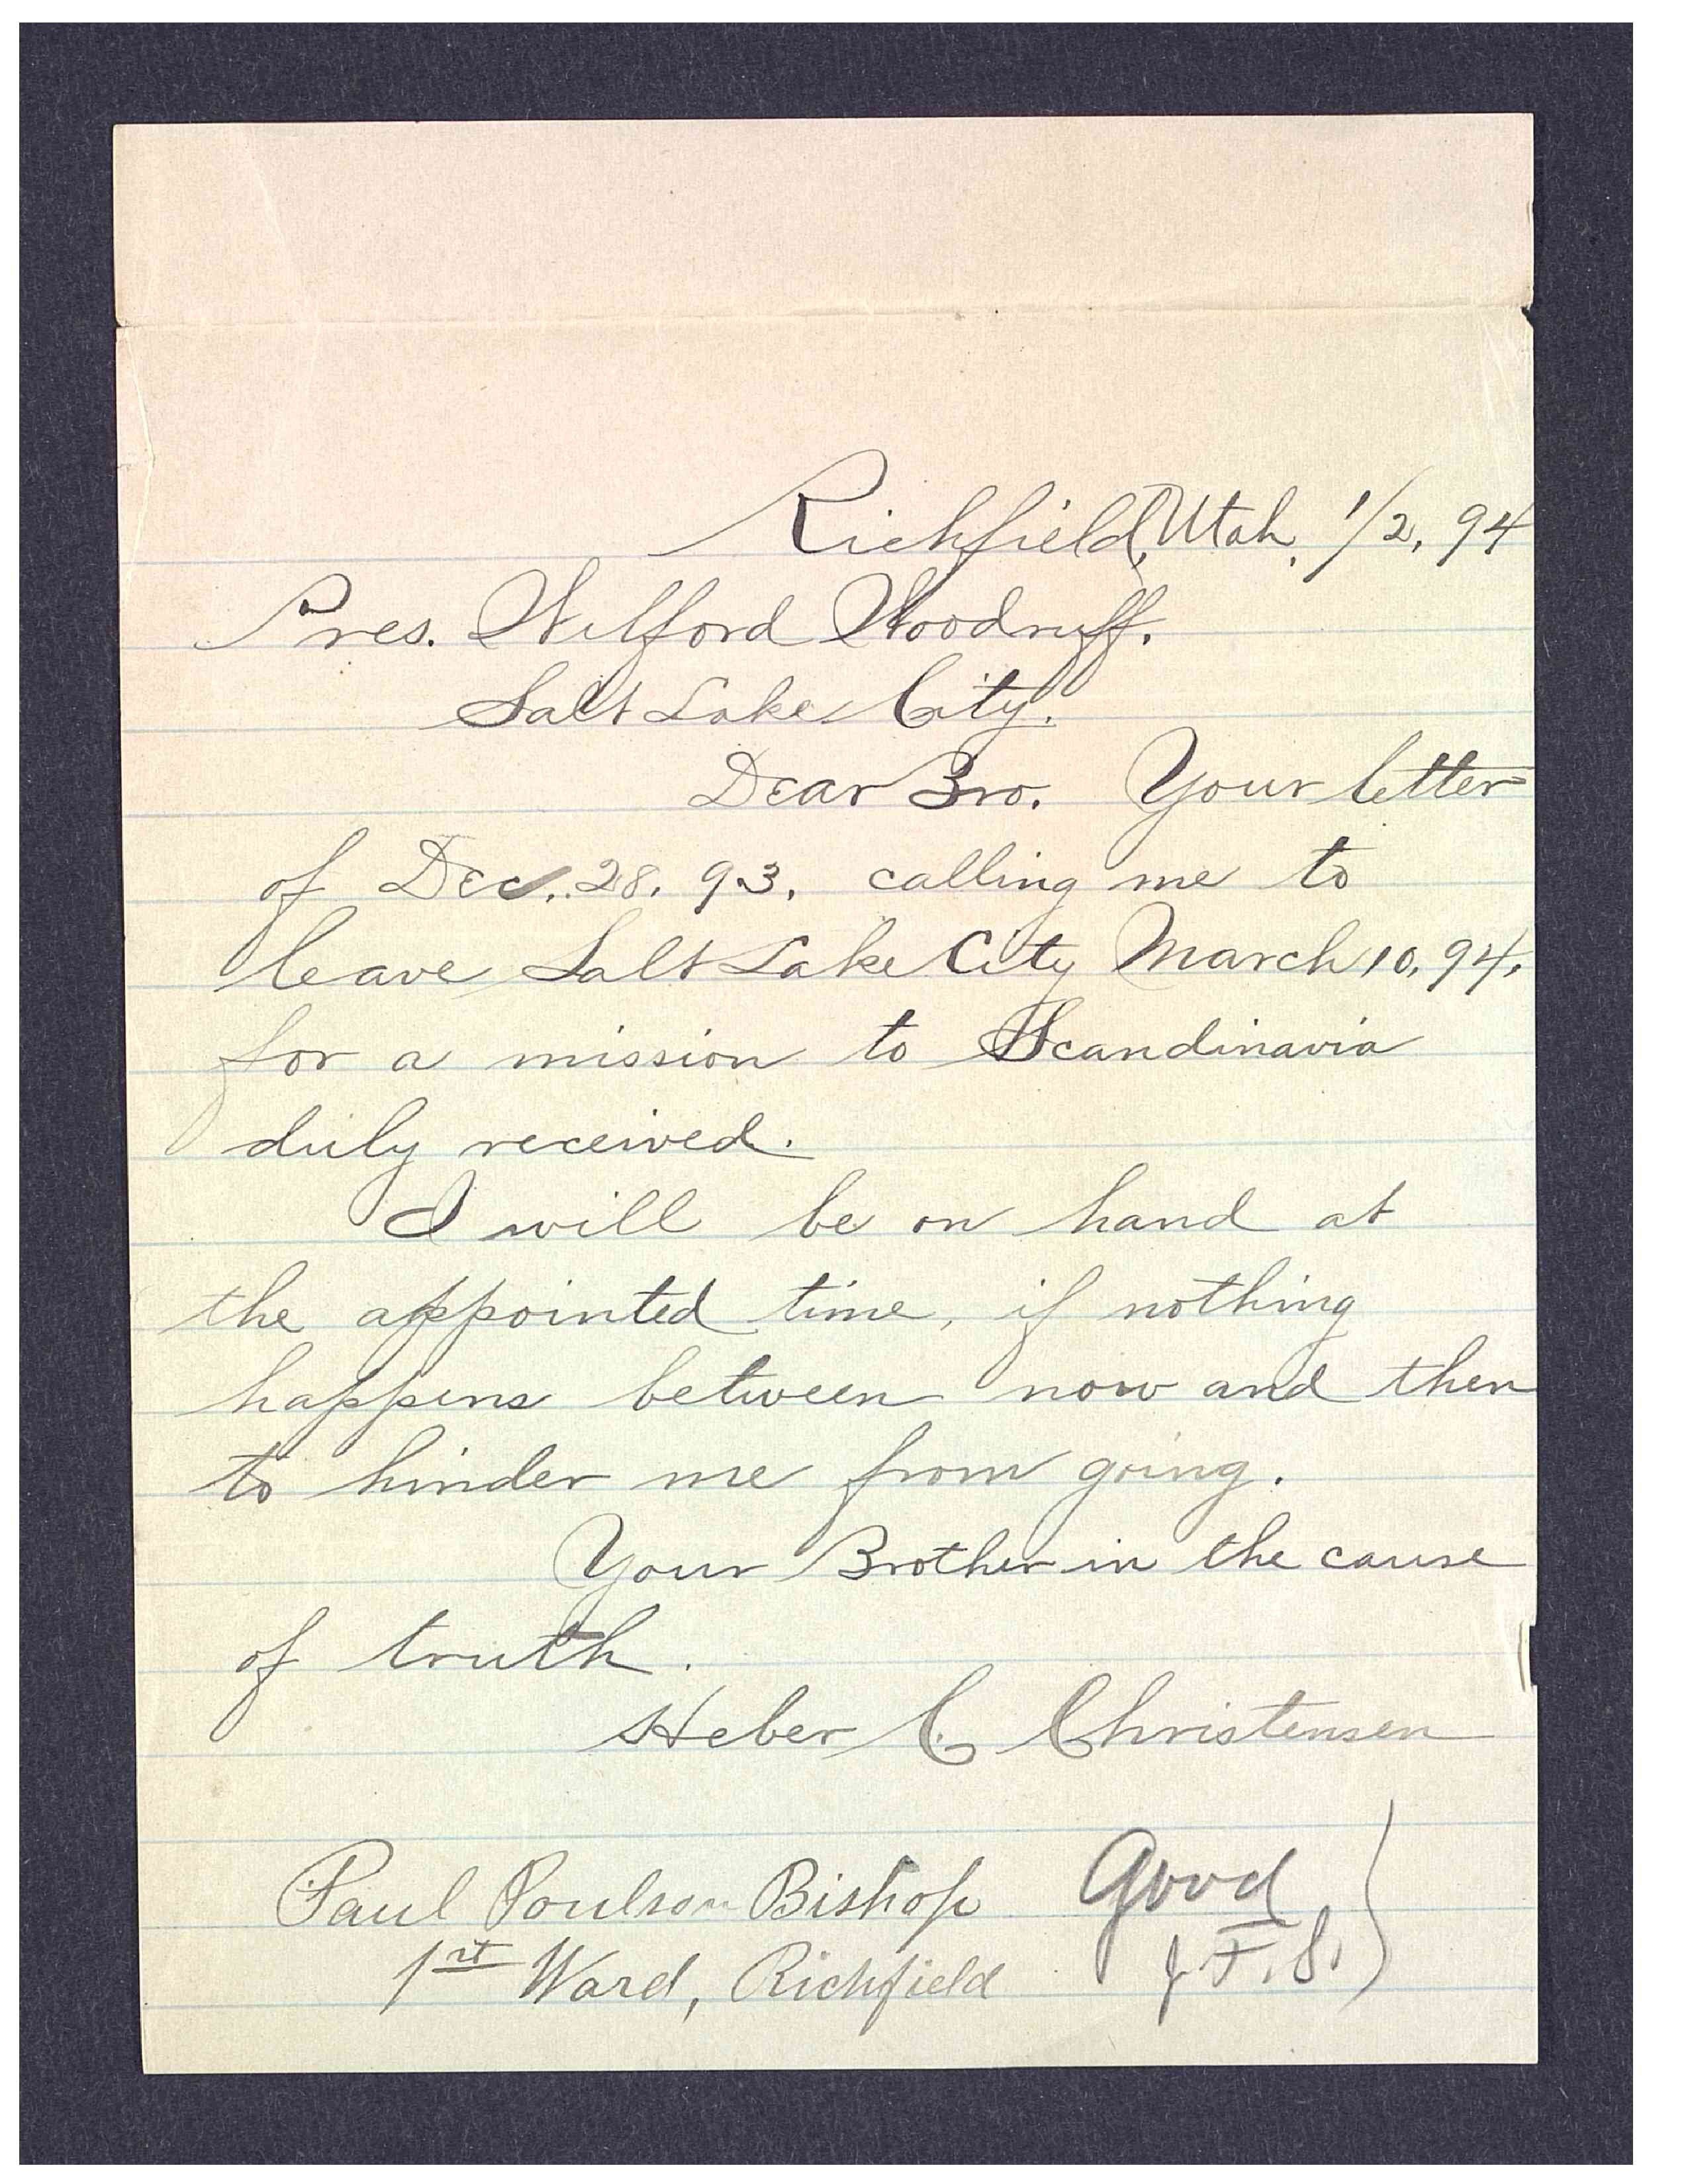 Richfield, Utah, 1/2, 94
Pres. Wilford Woodruff.
Salt Lake City.
Dear Bro. Your letter
of Dec. 28. 93. calling me to
leave Salt Lake City March 10, 94,
for a mission to Scandinavia
duly received.
I will be on hand at
the appointed time, if nothing
happens between now and then
to hinder me from going.
Your Brother in the cause
of truth.
Heber C. Christensen
Paul Poulson Bishop
1st Ward, Richfield
Good
J. F. S.